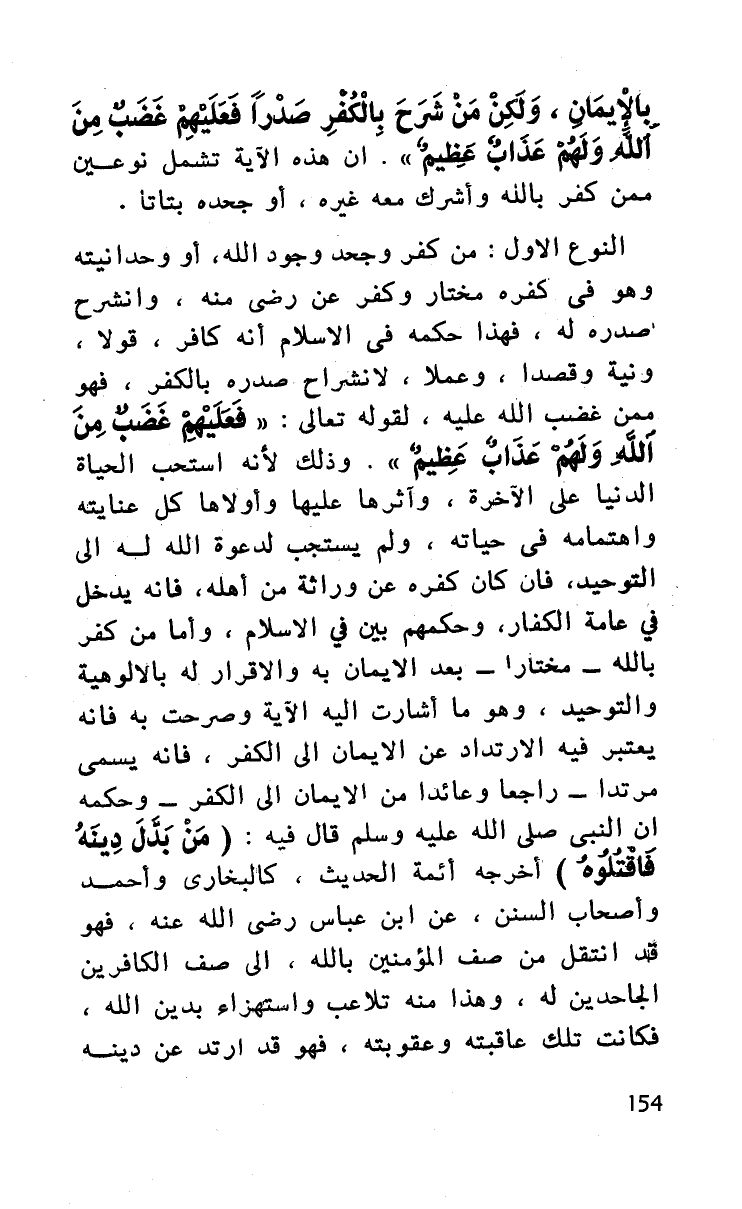 بِالْإِيمَانِ ، وَلَكِنْ مَنْ شَرَحَ بِالْكُفْرِ صَدْراً فَعَلَيْهِمْ غَضَبٌ مِنَ
اللَّهِ وَلَهُمْ عَذَابٌ عَظِيمٌ » . ان هذه الآية تشمل نوعـين
ممن كفر بالله وأشرك معه غيره ، أو جحده بتاتا .
النوع الاول : من كفر وجحد وجود الله، أو وحدانيته
وهو فى كفره مختار وكفر عن رضى منه ، وانشرح
صدره له ، فهذا حكمه فى الاسلام أنه كافر ، قولا ،
ونية وقصدا ، وعملا ، لانشراح صدره بالكفر ، فهو
ممن غضب الله عليه ، لقوله تعالى : « فَعَلَيْهِمْ غَضَبٌ مِنَ
اللَّهِ وَلَهُمْ عَذَابٌ عَظِيمٌ » . وذلك لأنه استحب الحياة
الدنيا على الآخرة ، وآثرها عليها وأولاها كل عنايته
واهتمامه فى حياته ، ولم يستجب لدعوة الله لـه الى
التوحيد، فان كان كفره عن وراثة من أهله، فانه يدخل
في عامة الكفار، وحكمهم بين في الاسلام ، وأما من كفر
بالله ــ مختارا ــ بعد الايمان به والاقرار له بالالوهية
والتوحيد ، وهو ما أشارت اليه الآية وصرحت به فانه
يعتبر فيه الارتداد عن الايمان الى الكفر ، فانه يسمى
مرتدا ــ راجعا وعائدا من الايمان الى الكفر ــ وحكمه
ان النبى صلى الله عليه وسلم قال فيه : ( مَنْ بَدَّلَ دِينَهُ
فَاقْتُلُوهُ ) أخرجه أئمة الحديث ، كالبخارى وأحمـد
وأصحاب السنن ، عن ابن عباس رضى الله عنه ، فهو
قد انتقل من صف المؤمنين بالله ، الى صف الكافرين
الجاحدين له ، وهذا منه تلاعب واستهزاء بدين الله ،
فكانت تلك عاقبته وعقوبته ، فهو قد ارتد عن دينـه
154